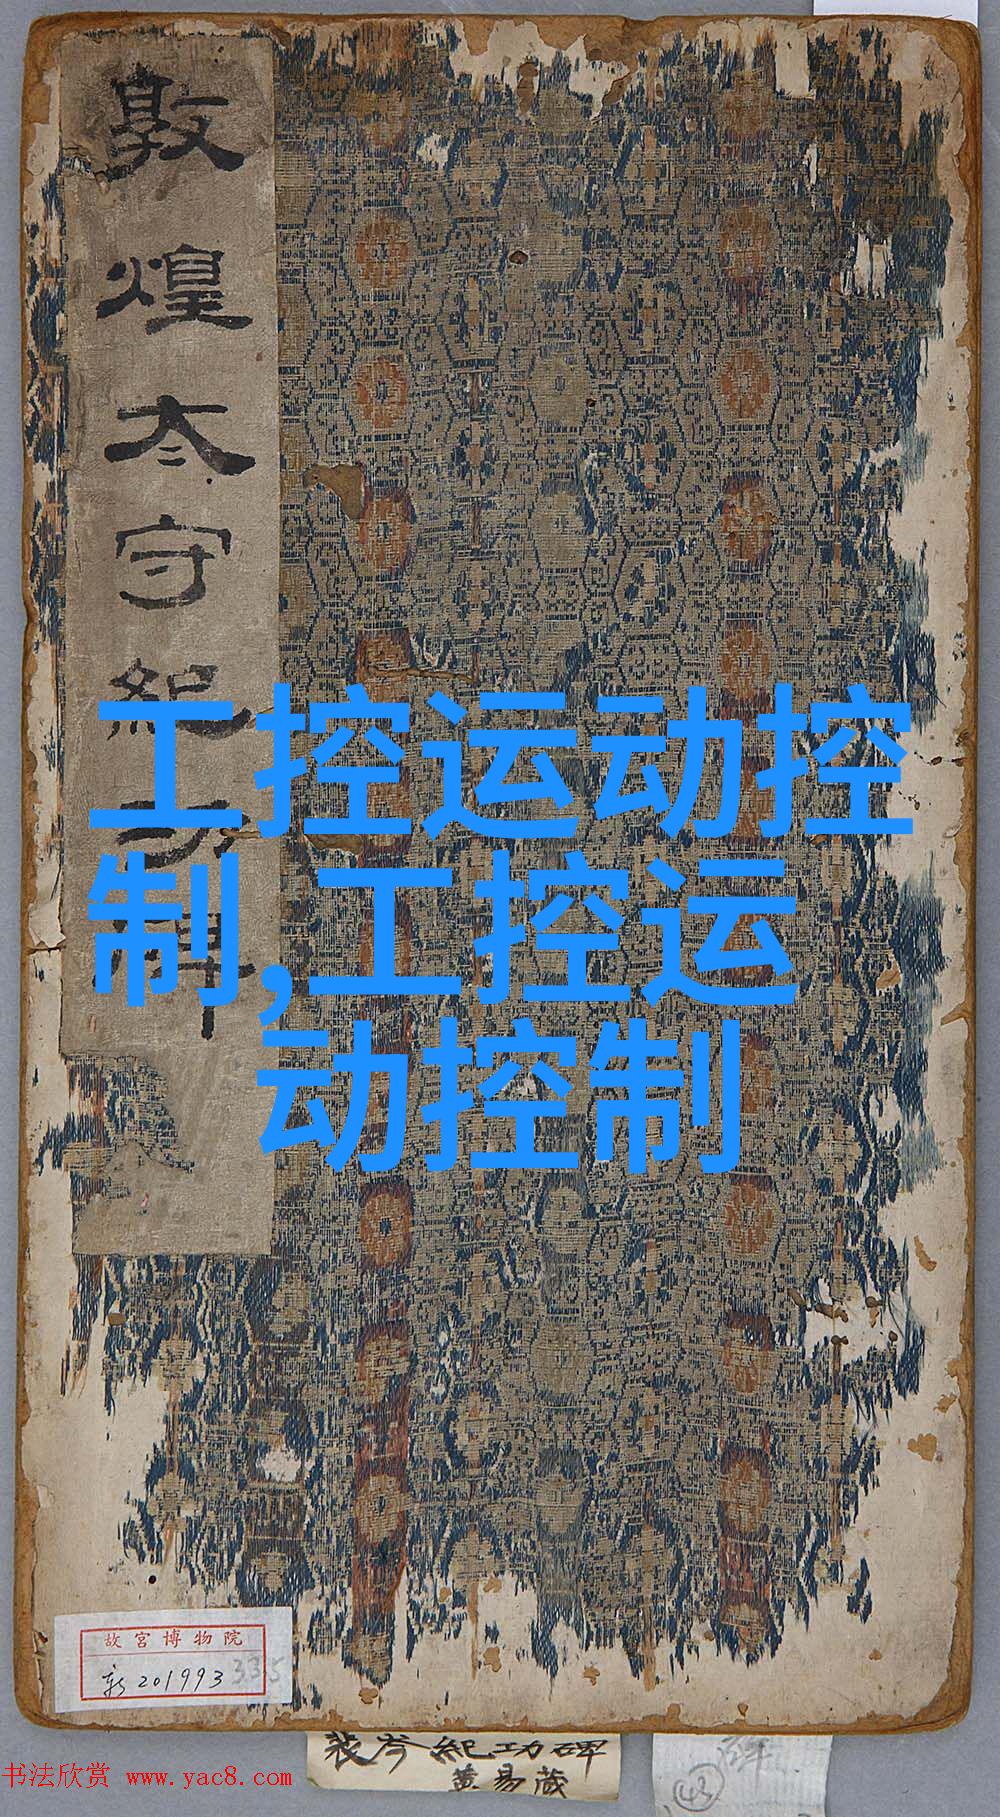 敦煌太守紀功碑
工控运动控
制,工控运
动控制
故宫博物院
新201993 335
裴岑紀功碑
黄易藏
43
书法欣赏 www.yac8.com